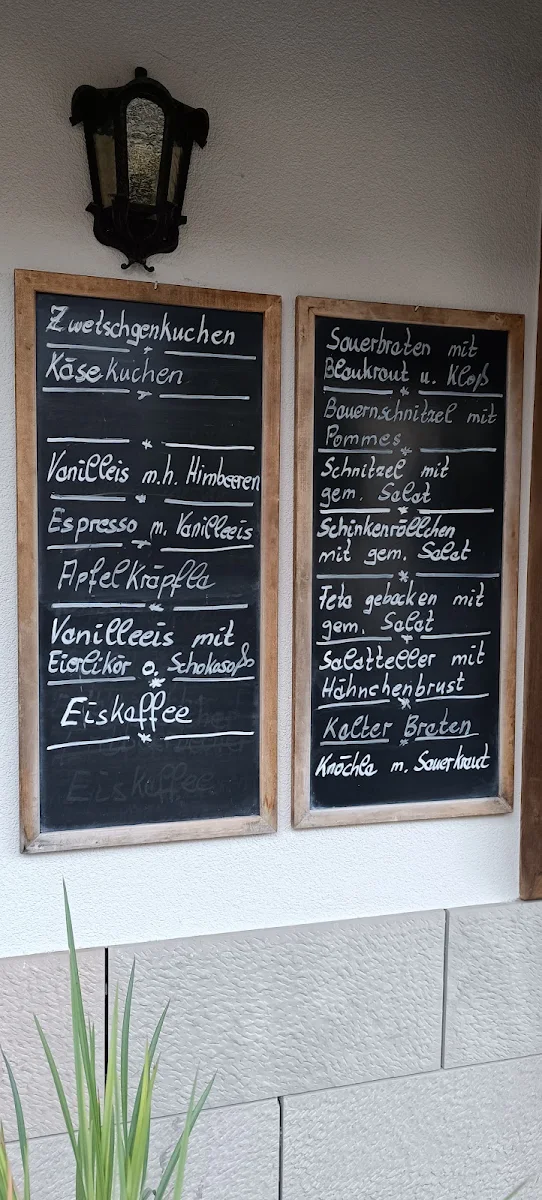 Zwetschgenkuchen
Käsekuchen
Vanilleis m.h. Himbeeren
Espresso m. Vanilleeis
Apfelkräpfla
Vanilleeis mit
Eierlikör o. Schokosoße
Eiskaffee
Eiskaffee
Sauerbraten mit
Blaukraut u. Kloß
Bauernschnitzel mit
Pommes
Schnitzel mit
gem. Salat
Schinkenröllchen
mit gem. Salat
Feta gebacken mit
gem. Salat
Salatteller mit
Hähnchenbrust
Kalter Braten
Knöchla m. Sauerkraut